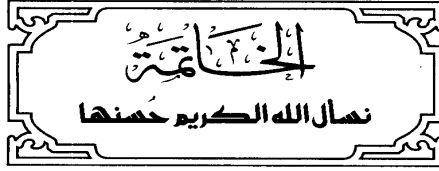 الخَاتِمَةُ
نسأل الله الكريم حُسنها